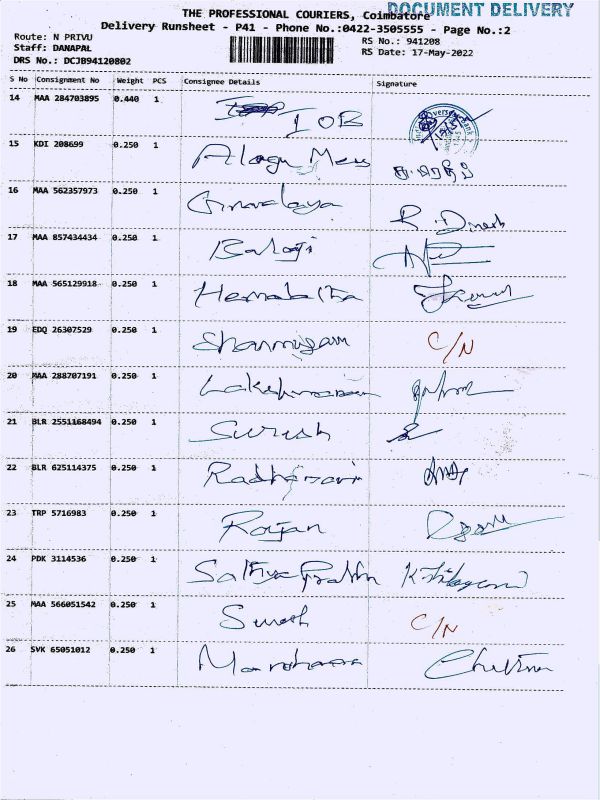 THE PROFESSIONAL COURIERS, Coimbatore
DOCUMENT DELIVERY
Delivery Runsheet - P41 - Phone No.:0422-3505555 - Page No.:2
Route: N PRIVU
RS No.: 941208
Staff: DANAPAL
RS Date: 17-May-2022
DRS No.: DCJB94120802
S No Consignment No Weight PCS Consignee Details Signature
14 MAA 284703895 0.440 1 IOB
15 KDI 208699 0.250 1 Alagu
16 MAA 562357973 0.250 1 R. Dinesh
17 MAA 857434434 0.250 1 Balaji
18 MAA 565129918 0.250 1 Hemalatha
19 EDQ 26307529 0.250 1 Shanmugam C/N
20 MAA 288707191 0.250 1 Lakshmanan
21 BLR 2551168494 0.250 1 Suresh
22 BLR 625114375 0.250 1
23 TRP 5716983 0.250 1 Rajan
24 PDK 3114536 0.250 1 Sathya Prabhu
25 MAA 566051542 0.250 1 Suresh C/N
26 SVK 65051012 0.250 1 Manoharan